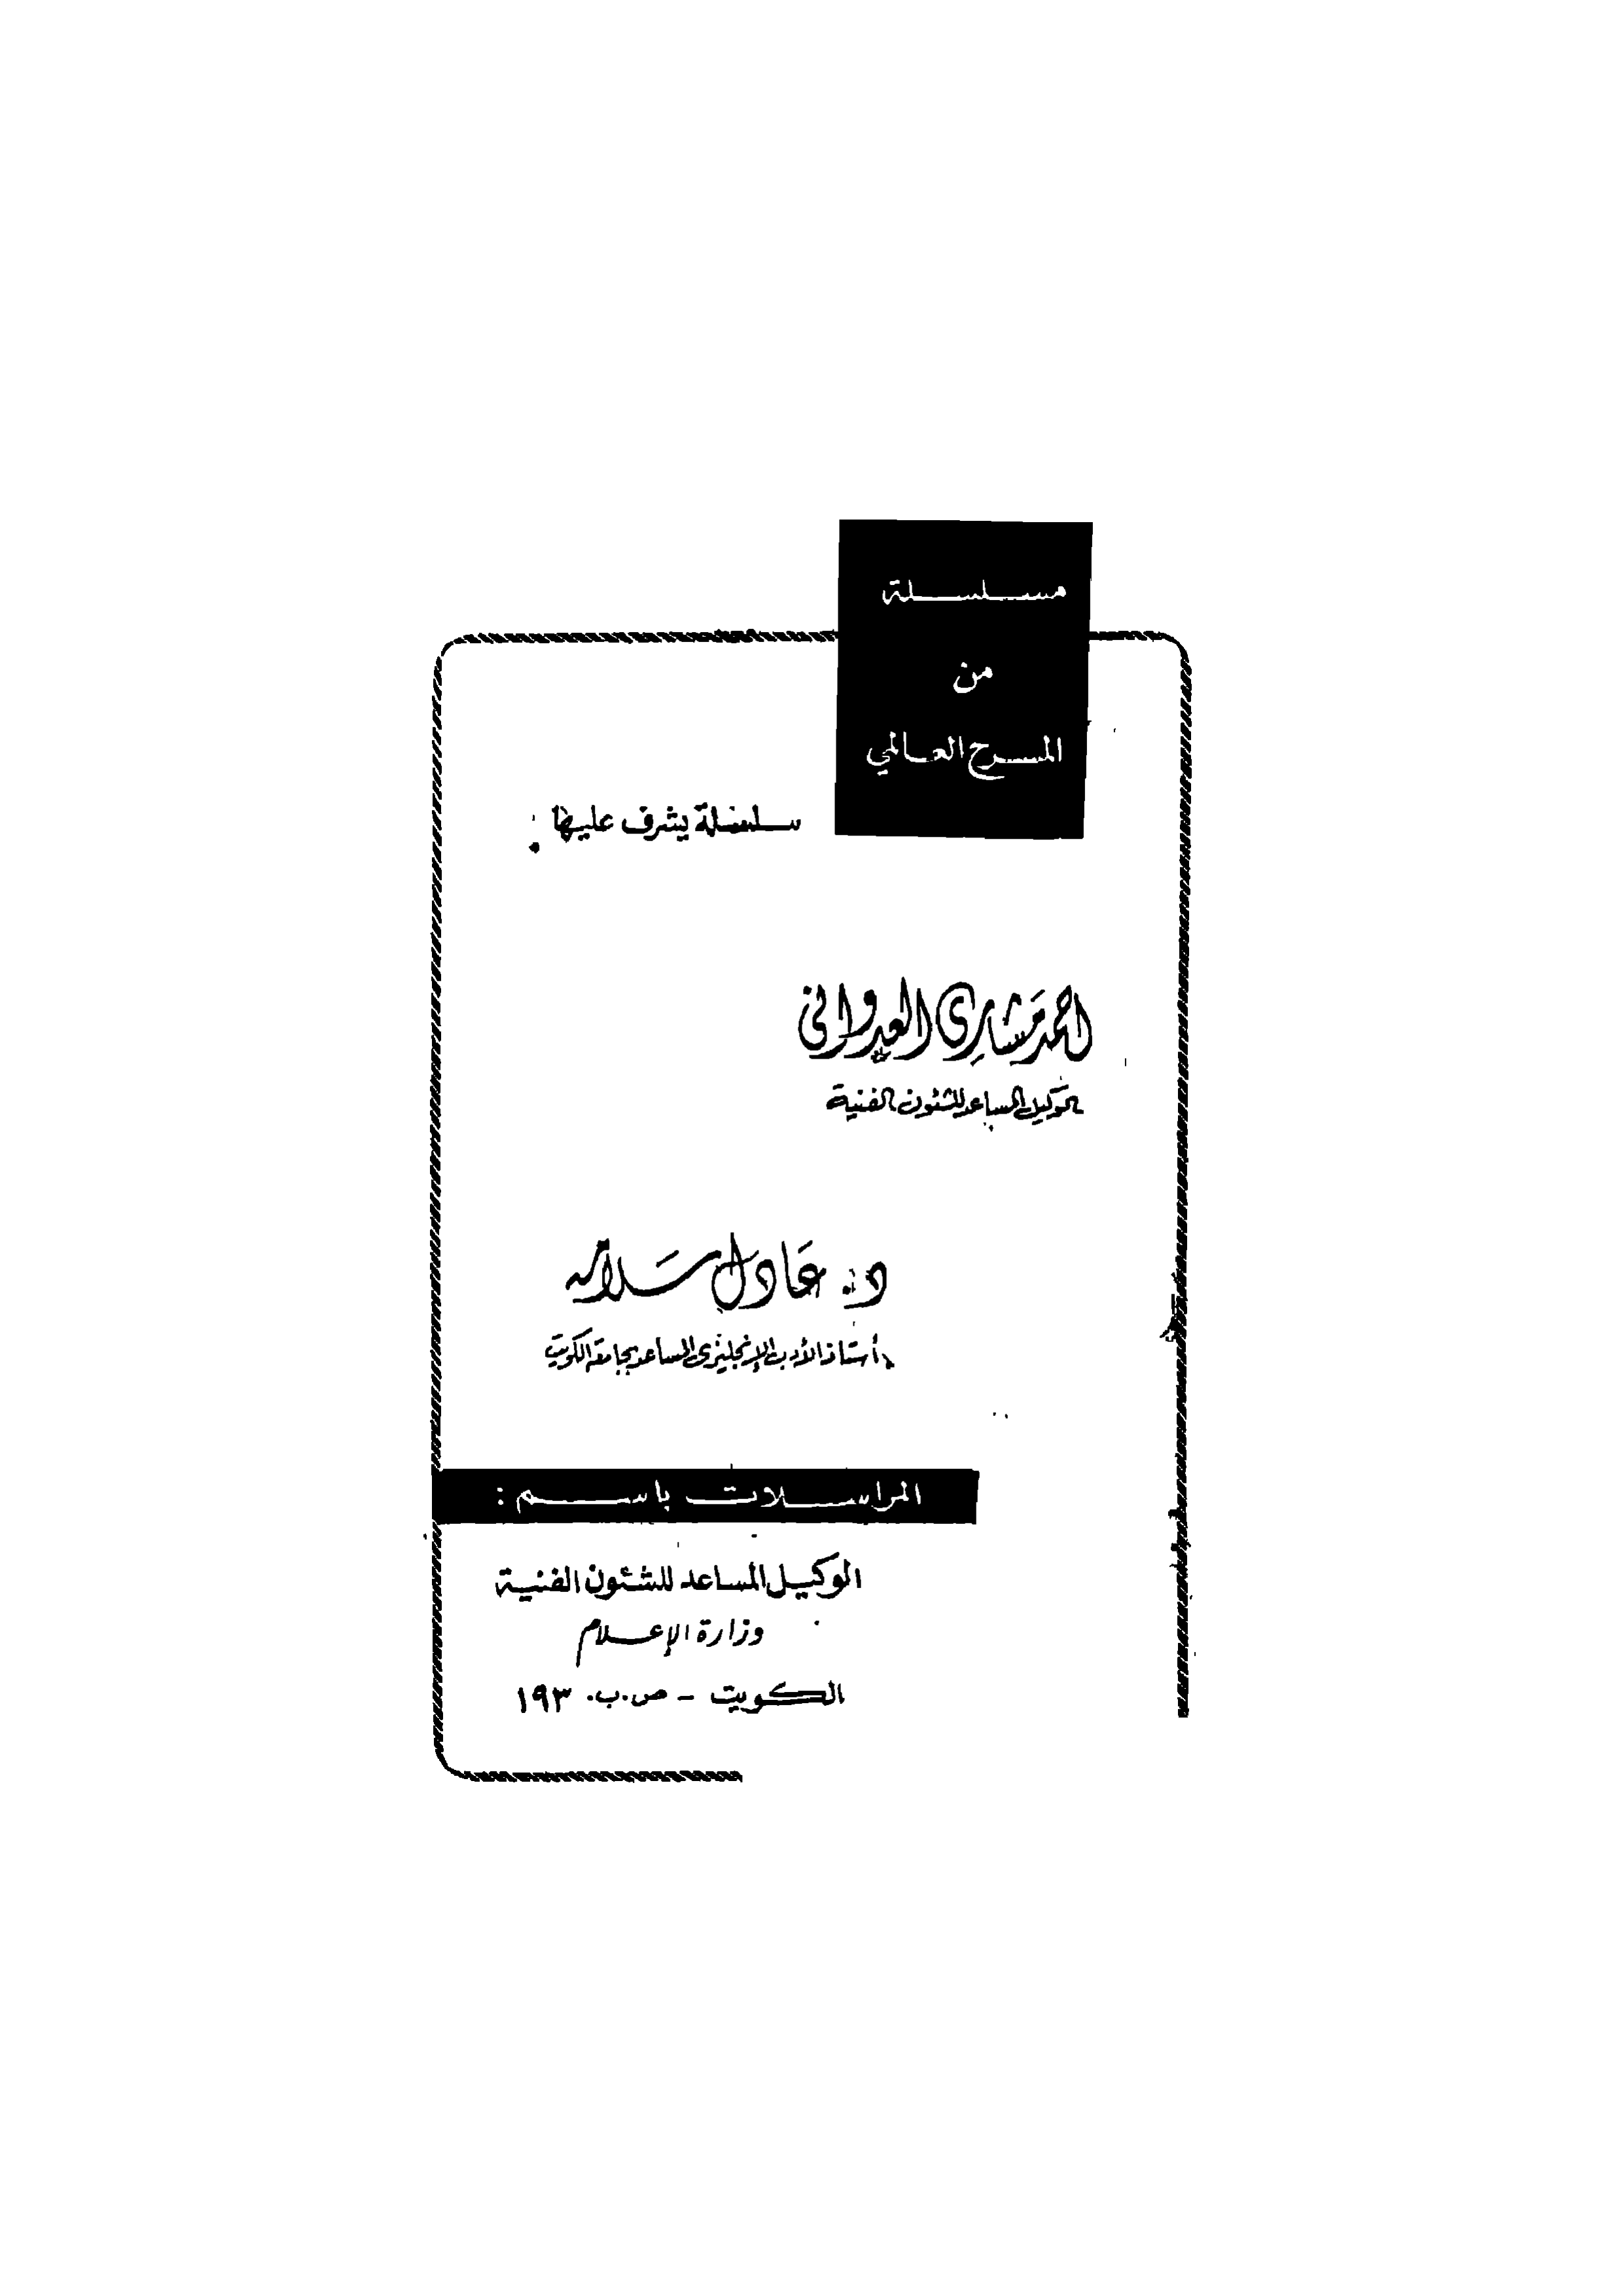 سلسلة
من
المسرح العالمي
سلسلة يشرف عليها:
احمد مشاري العدواني
الوكيل المساعد للشئون الفنية
د. عادل سلامه
أستاذ الأدب الإنجليزى المساعد بجامعة الكويت
المراسلات باسم:
الوكيل المساعد للشئون الفنية
وزارة الإعلام
الكويت - ص.ب. ١٩٣